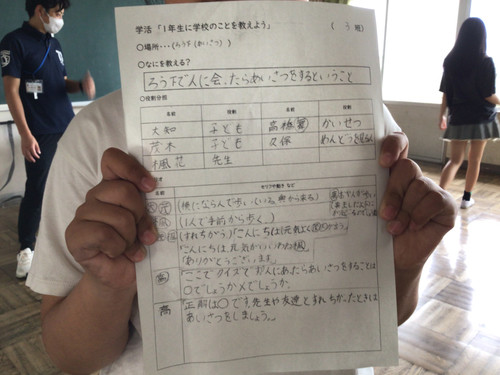 学活「1年生に学校のことを教えよう」
(5班)
○場所・・・(ろう下(あいさつ)
○なにを教える?
ろう下で人に会ったらあいさつをするということ
○役割分担
名前 役割 名前 役割
大知 子ども 高橋 かいせつ
茂木 子ども 久保
楓花 先生
名前 セリフや動き など
(横にならんで歩いている
(1人で手前から歩く。)
(すれちがう)「こんにちは(元気よく
「こんにちは、元気がいいわね
「ありがとうございます」
「ここでクイズです。人にあったらあいさつをすることは
○でしょうか×でしょうか。
高 正解は○です。先生や友達とすれちがったときは
あいさつをしましょう。